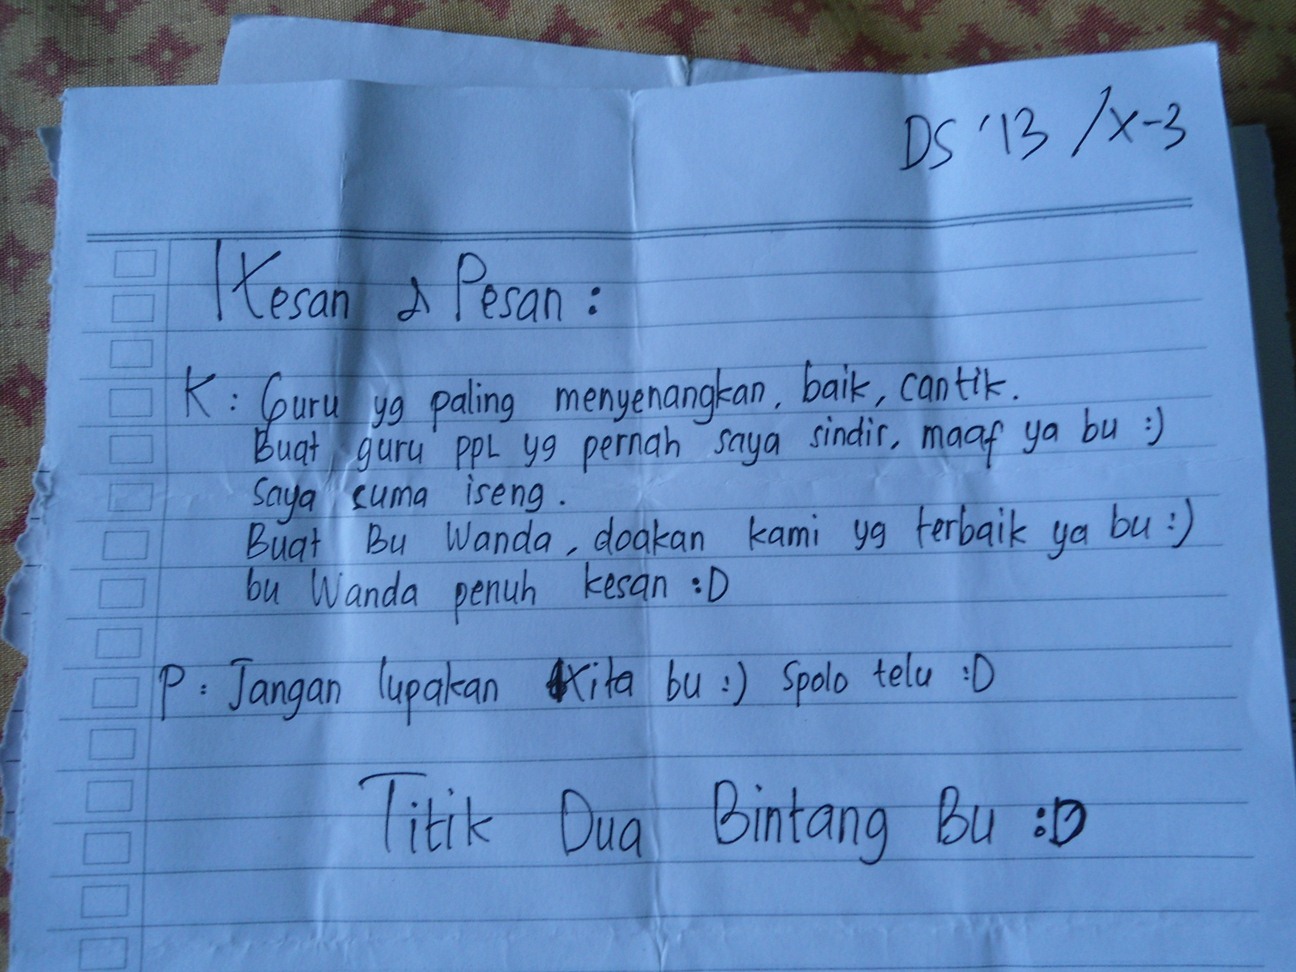 DS '13 / X-3
Kesan & Pesan :
K : Guru yg paling menyenangkan, baik, cantik.
Buat guru PPL yg pernah saya sindir, maaf ya bu :)
Saya cuma iseng.
Buat Bu Wanda, doakan kami yg terbaik ya bu :)
bu Wanda penuh kesan :D
P : Jangan lupakan kita bu :) Spolo telu :D
Titik Dua Bintang Bu :D